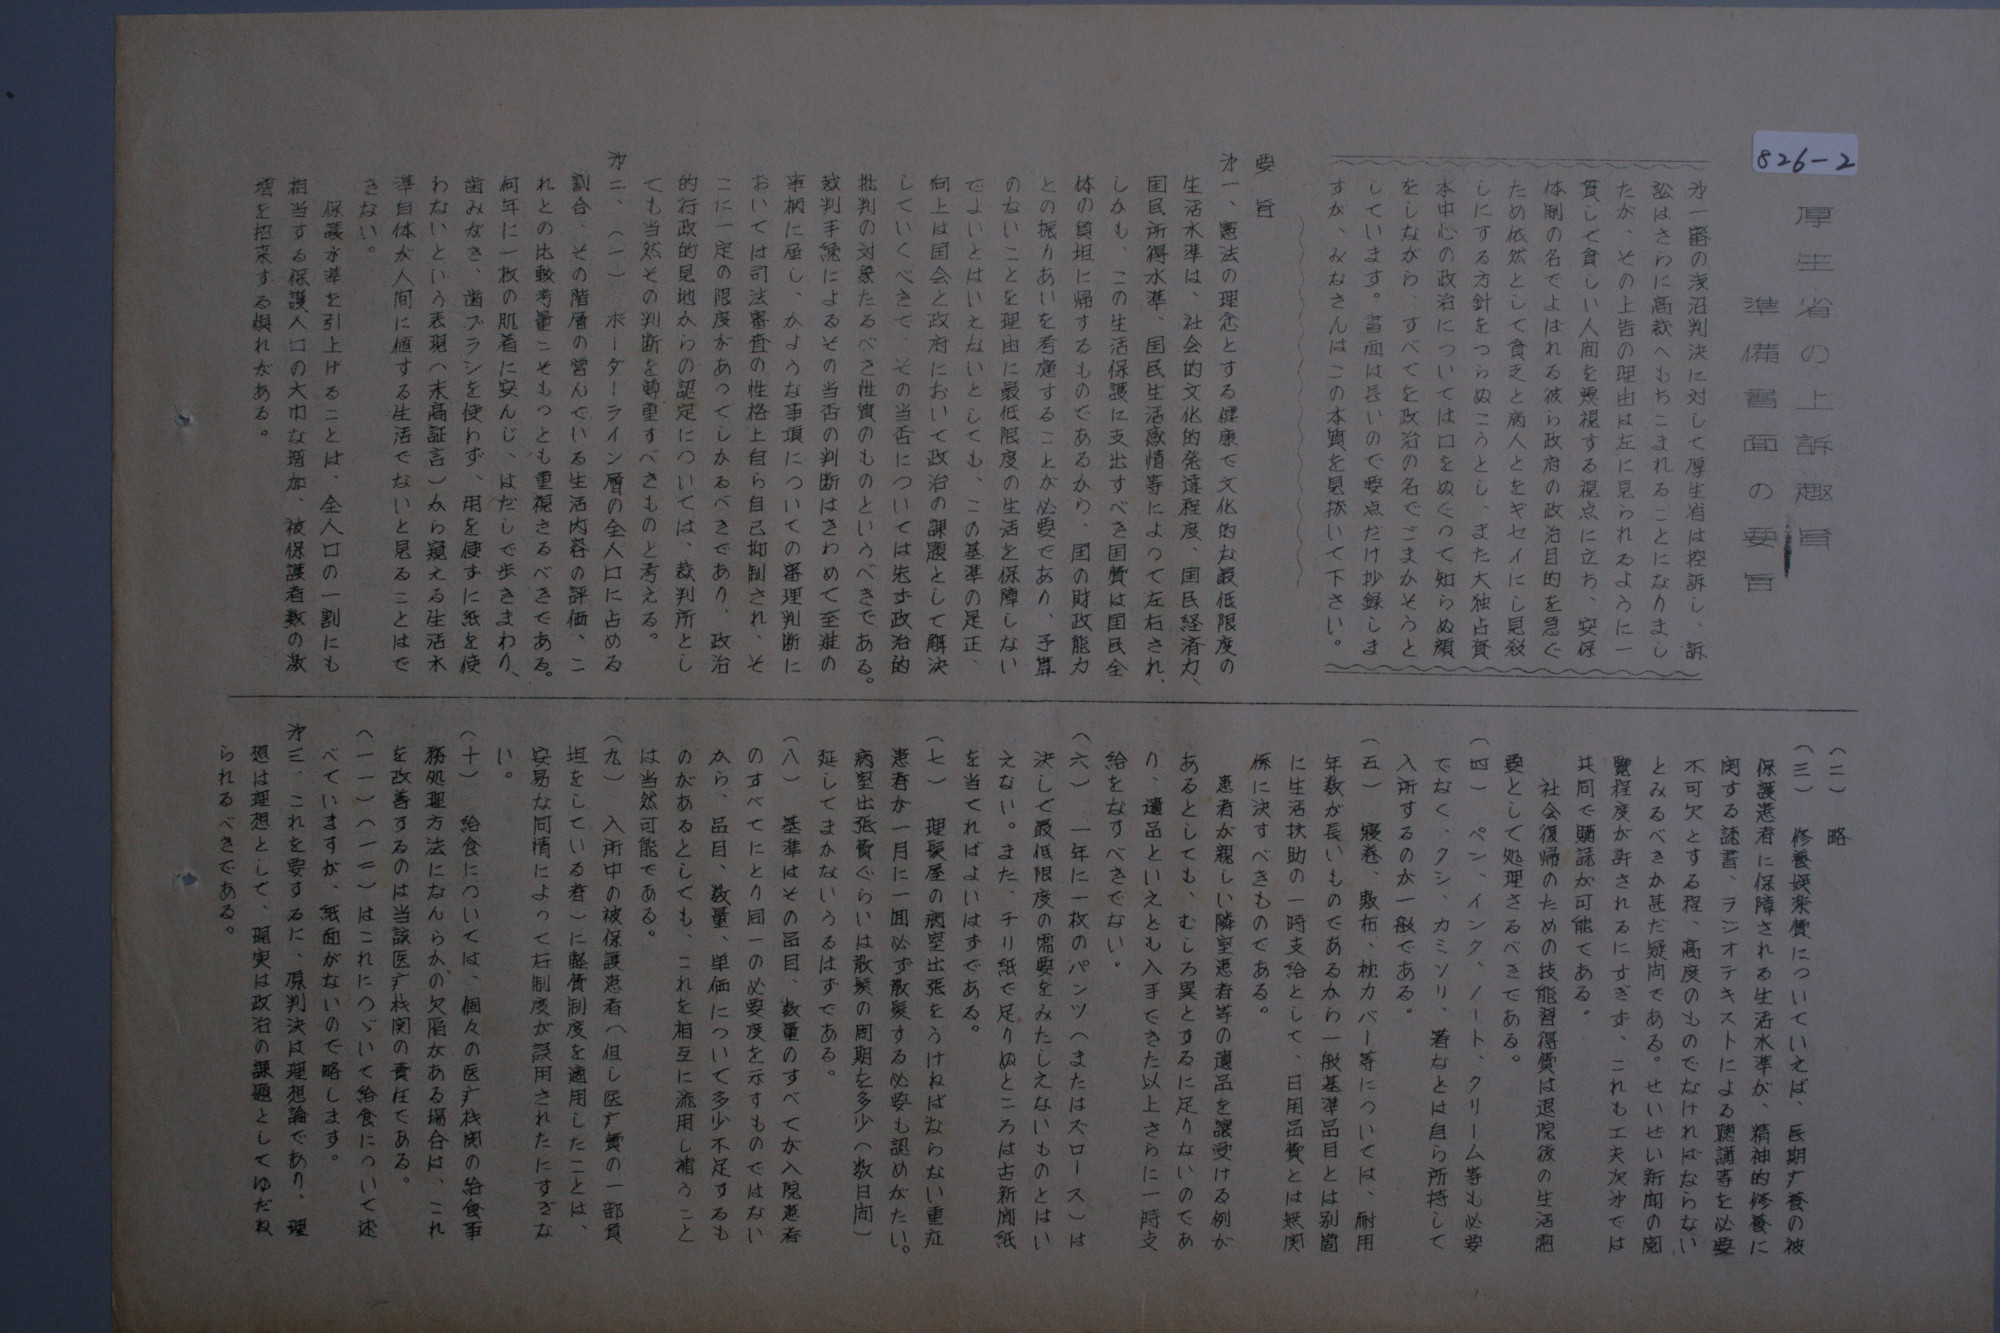 826-2
厚生省の上訴趣旨
準備書面の要旨
才一審の浅沼判決に対して厚生省は控訴し、訴
訟はさらに高裁へもちこまれることになりまし
たが、その上告の理由は左に見られるように一
貫して貧しい人間を蔑視する視点に立ち、安保
体制の名でよばれる彼ら政府の政治目的を急ぐ
ため依然として貧乏と病人とをギセイにし見殺
しにする方針をつらぬこうとし、また大独占資
本中心の政治については口をぬぐって知らぬ顔
をしながら、すべてを政治の名でごまかそうと
しています。書面は長いので要点だけ抄録しま
すが、みなさんはこの本質を見抜いて下さい。
要旨
才一、憲法の理念とする健康で文化的な最低限度の
生活水準は、社会的文化的発達程度、国民経済力、
国民所得水準、国民生活感情等によって左右され、
しかも、この生活保護に支出すべき国費は国民全
体の負担に帰するものであるから、国の財政能力
との振りあいを考慮することが必要であり、予算
のないことを理由に最低限度の生活を保障しない
でよいとはいえないとしても、この基準の是正、
向上は国会と政府において政治の課題として解決
していくべきで、その当否については先ず政治的
批判の対象たるべき性質のものというべきである。
裁判手続によるその当否の判断はきわめて至難の
事柄に属し、かような事項についての審理判断に
おいては司法審査の性格上自ら自己抑制され、そ
こに一定の限度があってしかるべきであり、政治
的行政的見地からの認定については、裁判所とし
ても当然その判断を尊重すべきものと考える。
才二、(一) ボーダーライン層の全人口に占める
割合、その階層の営んでいる生活内容の評価、こ
れとの比較考量こそもっとも重視さるべきである。
何年に一枚の肌着に安んじ、はだしで歩きまわり、
歯みがき、歯ブラシを使わず、用を便ずに紙を使
わないという表現(末高証言)から窺える生活水
準自体が人間に値する生活でないと見ることはで
きない。
保護水準を引上げることは、全人口の一割にも
相当する保護人口の大巾な増加、被保護者数の激
増を招来する惧れがある。
(二) 略
(三) 修養娯楽費についていえば、長期疒養の被
保護患者に保障される生活水準が、精神的修養に
関する読書、ラジオテキストによる聴講等を必要
不可欠とする程、高度のものでなければならない
とみるべきか甚だ疑問である。せいぜい新聞の閲
覽程度が許されるにすぎず、これも工夫次才では
共同で購読が可能である。
社会復帰のための技能習得費は退院後の生活需
要として処理さるべきである。
(四) ペン、インク、ノート、クリーム等も必要
でなく、クシ、カミソリ、箸などは自ら所持して
入所するのが一般である。
(五) 寝巻、敷布、枕カバー等については、耐用
年数が長いものであるから一般基準品目とは別箇
に生活扶助の一時支給として、日用品費とは無関
係に決すべきものである。
患者が親しい隣室患者等の遺品を譲受ける例が
あるとしても、むしろ異とするに足りないのであ
り、遺品といえども入手できた以上さらに一時支
給をなすべきでない。
(六) 一年に一枚のパンツ(またはズロース)は
決して最低限度の需要をみたしえないものとはい
えない。また、チリ紙で足りぬところは古新聞紙
を当てればよいはずである。
(七) 理髪屋の病室出張をうけねばならない重症
患者が一月に一回必ず散髪する必要も認めがたい。
病室出張費ぐらいは散髪の周期を多少(数日間)
延してまかないうるはずである。
(八) 基準はその品目、数量のすべてが入院患者
のすべてにとり同一の必要度を示すものではない
から、品目、数量、単価について多少不足するも
のがあるとしても、これを相互に流用し補うこと
は当然可能である。
(九) 入所中の被保護患者(但し医疒費の一部負
担をしている者)に軽費制度を適用したことは、
安易な同情によって右制度が誤用されたにすぎな
い。
(十) 給食については、個々の医疒機関の給食事
務処理方法になんらかの欠陥がある場合は、これ
を改善するのは当該医疒機関の責任である。
(一一)(一二)はこれにつゞいて給食について述
べていますが、紙面がないので略します。
才三、これを要するに、原判決は理想論であり、理
想は理想として、現実は政治の課題としてゆだね
られるべきである。